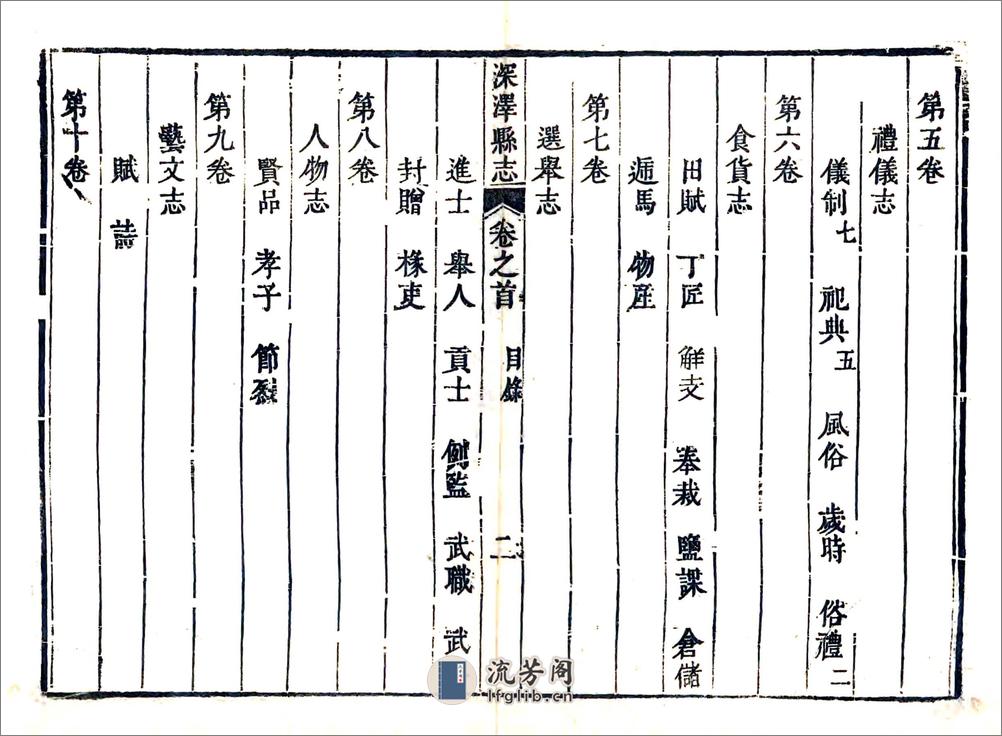 第五卷
禮儀志
儀制七 祀典五 風俗 歲時 俗禮二
第六卷
食貨志
田賦 丁匠 解支 奉裁 鹽課 倉儲
遞馬 物產
第七卷
選舉志
深澤縣志 卷之首 目錄 二
進士 舉人 貢士 例監 武職 武
封贈 椽吏
第八卷
人物志
賢品 孝子 節烈
第九卷
藝文志
賦 詩
第十卷
流芳阁
lfglib.cn